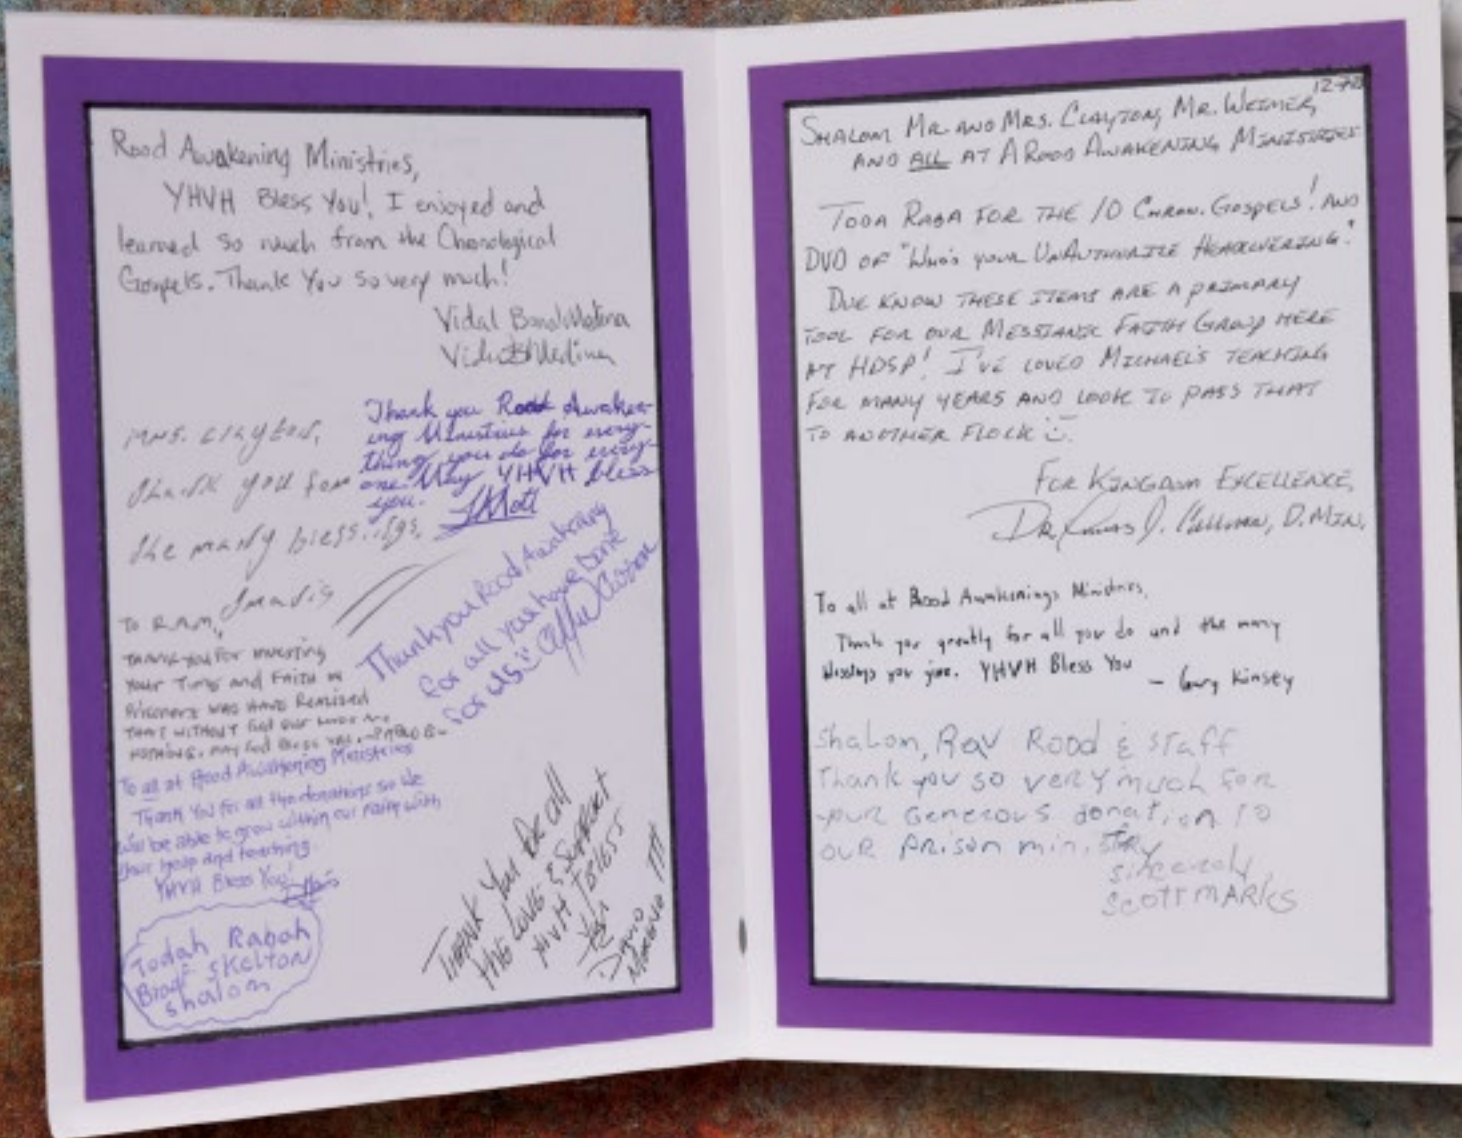 Rood Awakening Ministries,
YHVH Bless You! I enjoyed and
learned so much from the Chonological
Gospels. Thank You so very much!
Vidal
Mrs. Clayton,
thank you for
the many blessings.
Thank you Rood Awaken-
ing Ministries for every-
thing you do for every-
one. May YHVH bless
you.
Thank you Rood Awakening
for all you have Done
for us
To R.A.M.,
THANK YOU FOR INVESTING
YOUR TIME AND FAITH IN
PRISONERS WHO HAVE REALIZED
THAT WITHOUT God our lives are
NOTHING. MAY God Bless YOU.
To all at Rood Awakening Ministries
Thank You for all the donations so we
will be able to grow within our faith with
your help and teaching.
YHVH Bless You!
Todah Rabah
Brad Skelton
shalom
THANK YOU for all
the LOVE & SUPPORT
YHVH
DAVID
12-7-20
SHALOM MR. AND MRS. CLAYTON, MR. WEIMER,
AND ALL AT A ROOD AWAKENING MINISTRIES
TODA RABA FOR THE 10 CHRON. GOSPELS! AND
DVD OF "WHO'S YOUR UNAUTHORIZE HEADCOVERING."
DUE KNOW THESE ITEMS ARE A PRIMARY
TOOL FOR OUR MESSIANIC FAITH GROUP HERE
AT HDSP! I'VE LOVED MICHAEL'S TEACHING
FOR MANY YEARS AND LOOK TO PASS THAT
TO ANOTHER FLOCK
FOR KINGDOM EXCELLENCE,
DR. J. D.MIN.
To all at Rood Awakenings Ministries,
Thank you greatly for all you do and the many
blessings you give. YHVH Bless You
- Gary Kinsey
Shalom, Rav Rood & staff
Thank you so very much for
your Generous donation to
our Prison ministry
sincerely,
SCOTT MARKS